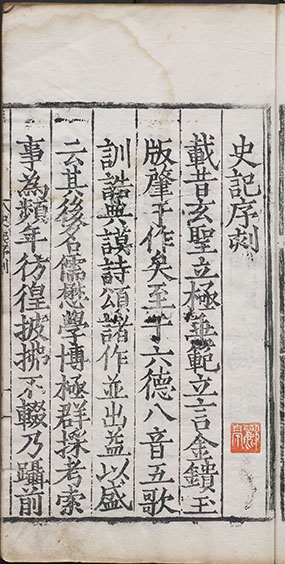 史記序刻
載昔玄聖立極垂範立言金鐀玉
版肇乎作矣至于六德八音五歌
訓誥典謨詩頌諸作並出益以盛
云其後名儒懋學博極群採考索
事為頻年彷徨披拂不輟乃躡前